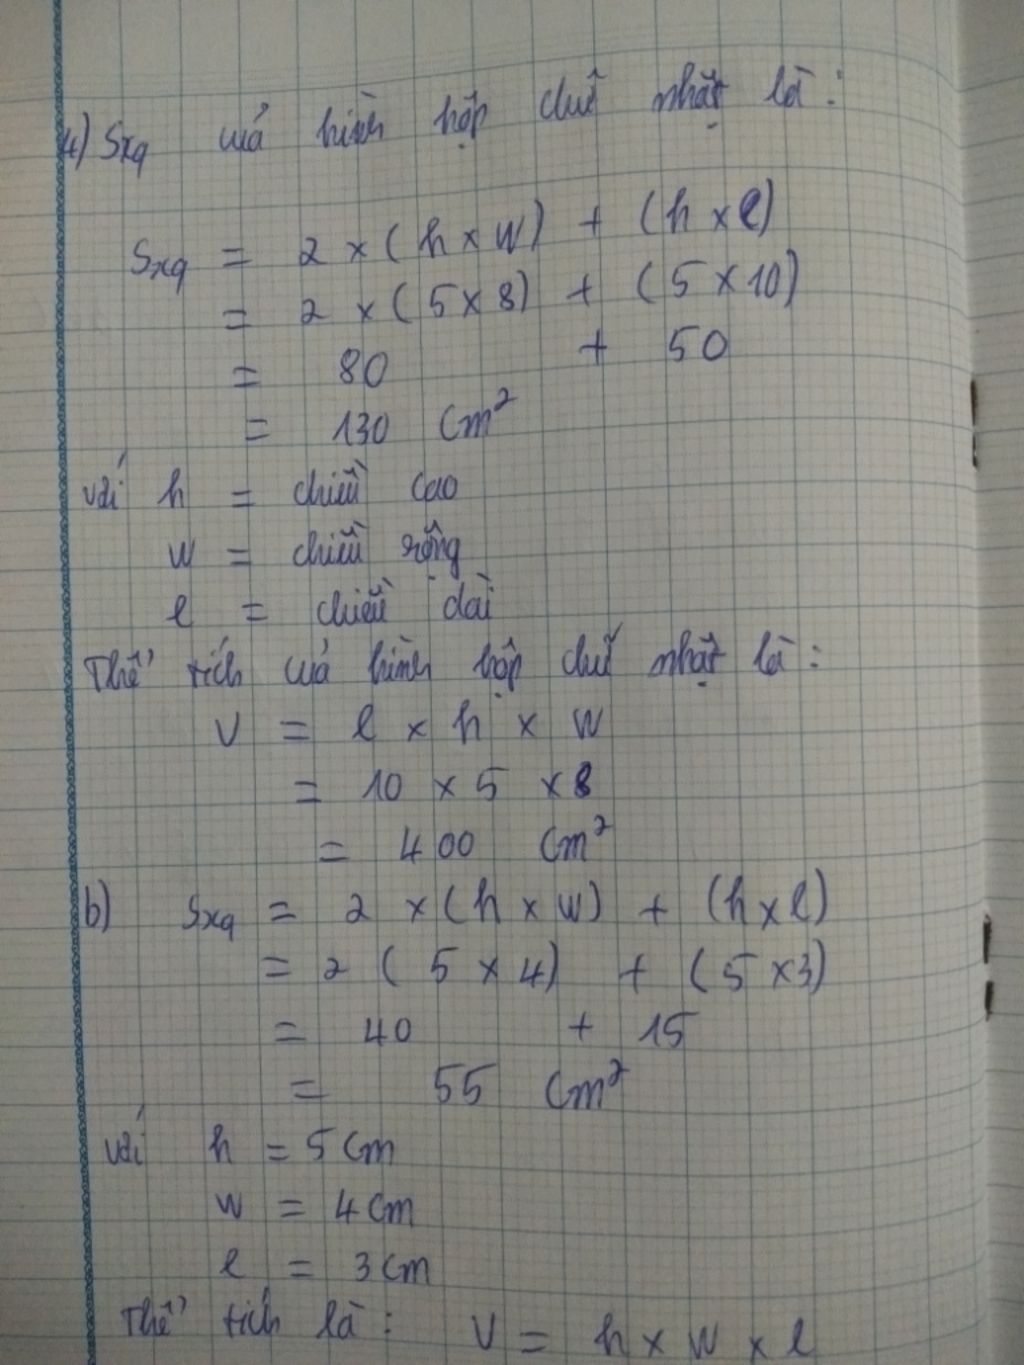 4) Sxq của hình hộp chữ nhật là :
Sxq = 2 × ( h × w ) + ( h × l )
= 2 × ( 5 × 8 ) + ( 5 × 10 )
= 80 + 50
= 130 cm²
với h = chiều cao
w = chiều rộng
l = chiều dài
Thể tích của hình hộp chữ nhật là :
V = l × h × w
= 10 × 5 × 8
= 400 cm²
b) Sxq = 2 × ( h × w ) + ( h × l )
= 2 ( 5 × 4 ) + ( 5 × 3 )
= 40 + 15
= 55 cm²
với h = 5 cm
w = 4 cm
l = 3 cm
Thể tích là : V = h × w × l